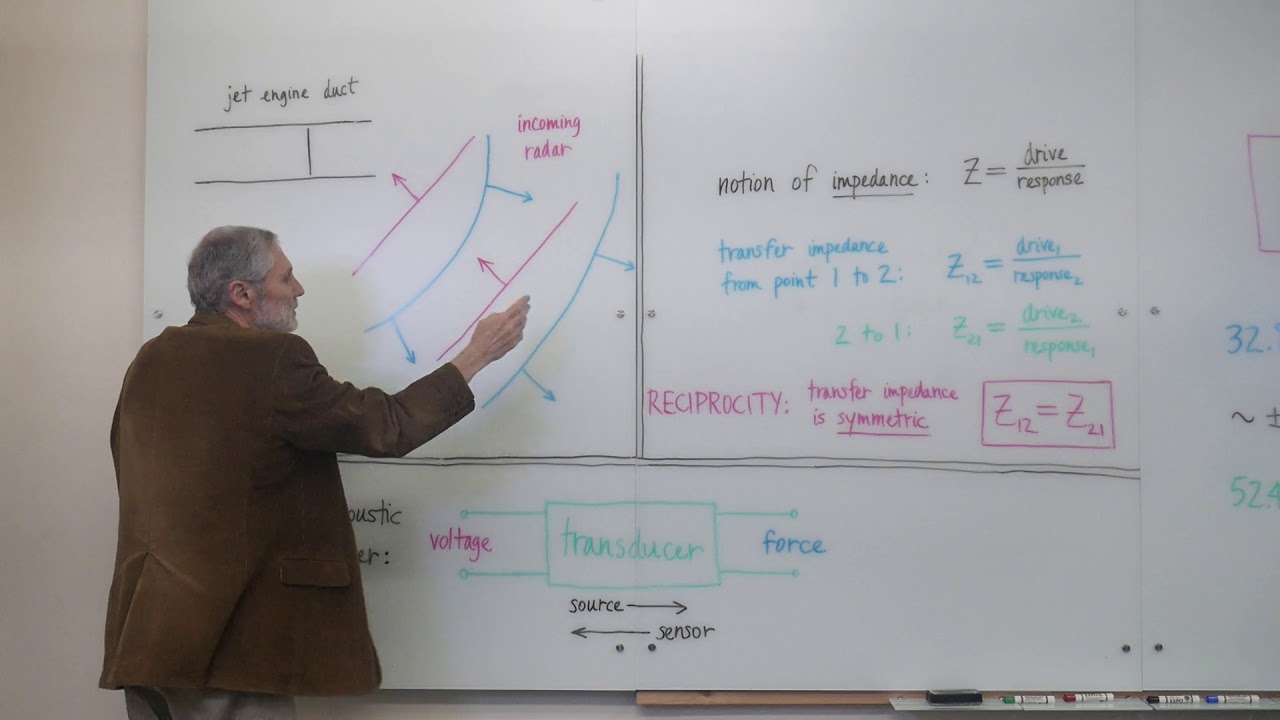 jet engine duct
incoming
radar
notion of impedance: Z = drive / response
transfer impedance
from point 1 to 2: Z₁₂ = drive₁ / response₂
2 to 1: Z₂₁ = drive₂ / response₁
RECIPROCITY: transfer impedance
is symmetric
Z₁₂ = Z₂₁
voltage
transducer
force
source →
← sensor
32.
~ ±
52.4